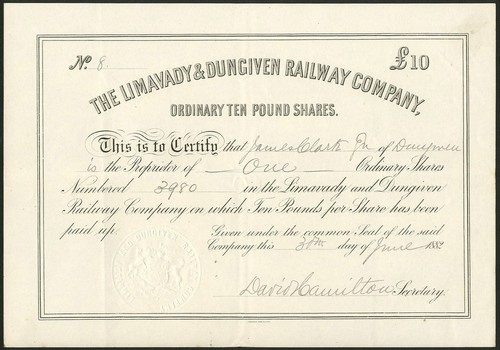 No. 8
£10
THE LIMAVADY & DUNGIVEN RAILWAY COMPANY,
ORDINARY TEN POUND SHARES.
This is to Certify that James Clark Jnr of Dungiven
is the Proprietor of One Ordinary Shares
Numbered 3980 in the Limavady and Dungiven
Railway Company on which Ten Pounds per Share has been
paid up.
Given under the common Seal of the said
Company this 30th day of June 188
David Hamilton Secretary.